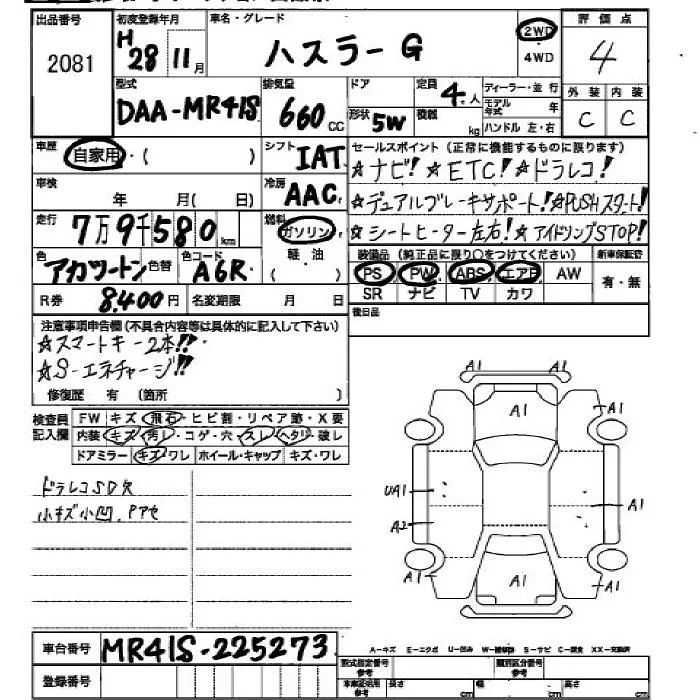 出品番号 初度登録年月 車名・グレード 評価点
2081 H 28 11月 ハスラー G 2WD 4WD 4
型式 排気量 ドア 定員 ディーラー・並行 外装 内装
DAA-MR41S 660 cc 4人 モデル年式 年
形状 5W 積載 kg ハンドル 左・右 C C
車歴 自家用・( ) シフト IAT セールスポイント(正常に機能するものに限ります)
☆ナビ! ☆ETC! ☆ドラレコ!
車検 年 月( 日) 冷房 AAC
☆デュアルブレーキサポート! ☆PUSHスタート!
走行 7万9千580km 燃料 ガソリン
☆シートヒーター左右! ☆アイドリングSTOP!
色 アカツートン 色替 色コード A6R 軽油 ( )
装備品(純正品に限り○をつけてください) 新車保証書
PS PW ABS エアB AW 有・無
R券 8,400円 名変期限 月 日 SR ナビ TV カワ
注意事項申告欄(不具合内容等は具体的に記入して下さい) 後日品
☆スマートキー2本!!
☆S-エネチャージ!!
修復歴 有 (箇所 )
検査員記入欄 FW キズ・飛石・ヒビ割・リペア跡・X要
内装 キズ・汚し・コゲ・穴・スレ・ヘタリ・破レ
ドアミラー キズ・ワレ ホイール・キャップ キズ・ワレ
ドラレコSD欠
小キズ小凹、Pアセ
A1 A1
A1
A1 A1
UA1
A1
A2
A1
A1 A1
車台番号 MR41S-225273
A-キズ E-エクボ U-凹み W-補修跡 S-サビ C-腐食 XX-交換済
登録番号
型式指定番号 参考 類別区分番号 参考
車車証明用 参考 長さ cm 幅 cm 高さ cm